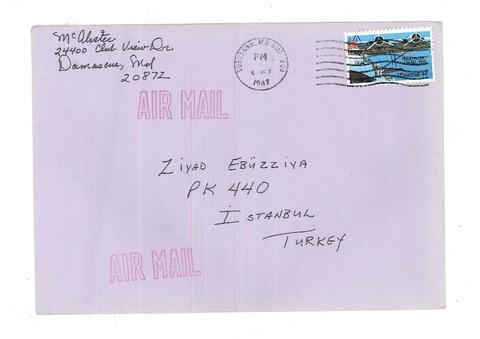 McAlister
24400 Club View Dr.
Damascus, Md
20872
SUBURBAN, MD
PM
1987
AIR MAIL
ZIYAD EBÜZZIYA
PK 440
İSTANBUL
TURKEY
AIR MAIL